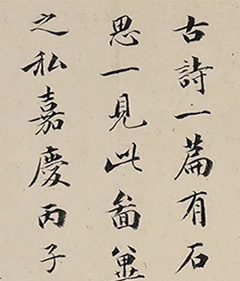 古詩一篇有石
思一見此啚
之私嘉慶丙子